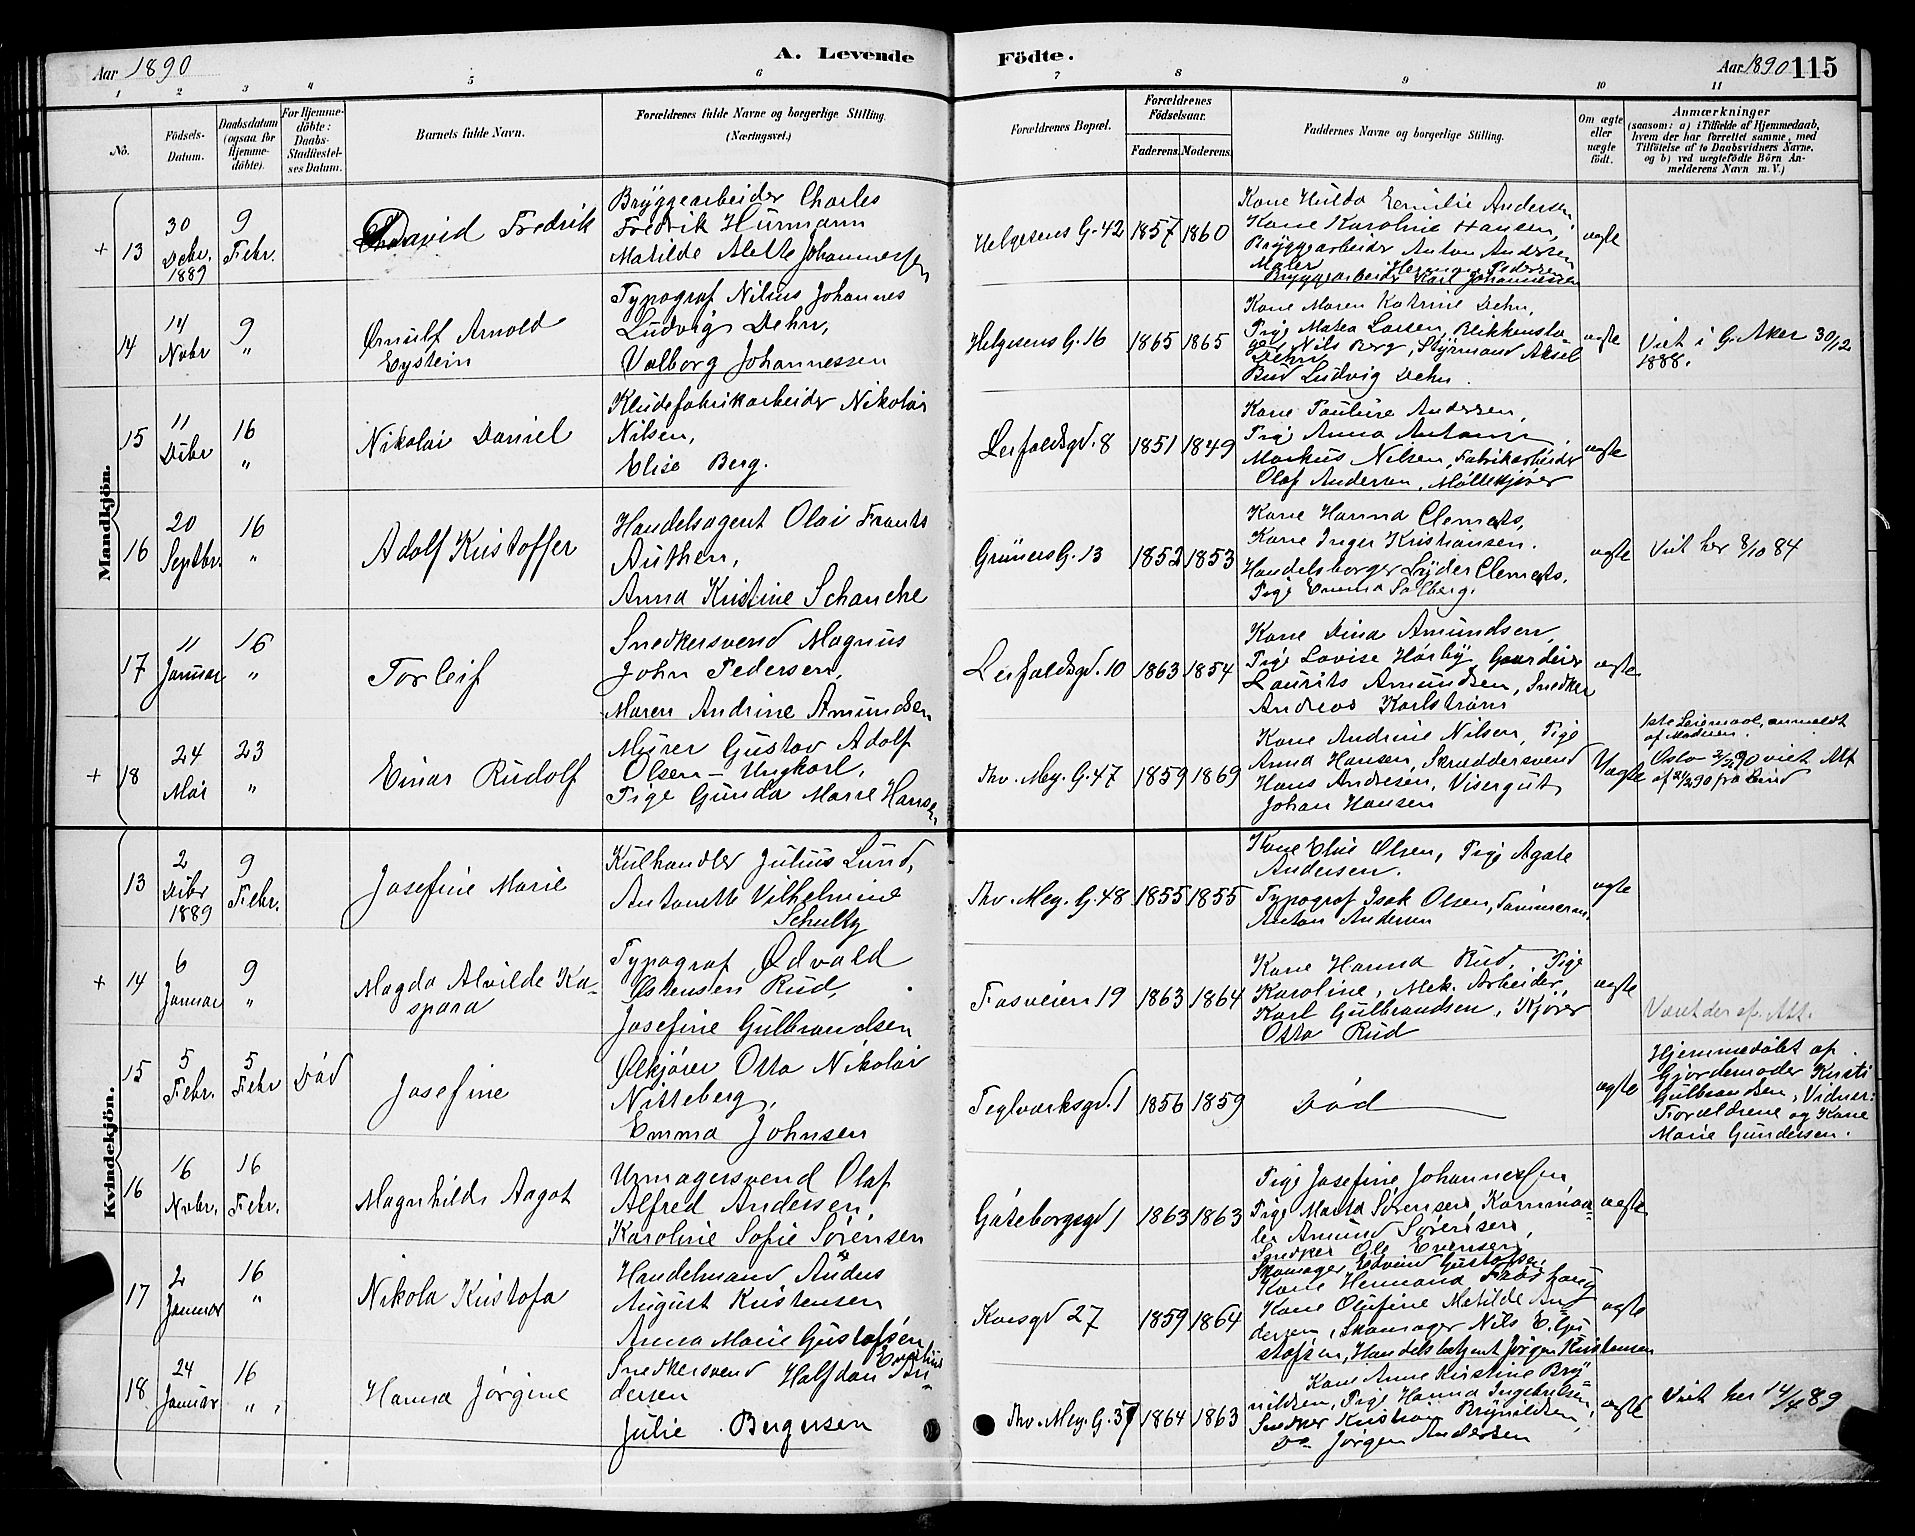 Aar 1890
A. Levende
Födte.
Aar 1890 115
1 2 3 4 5 6 7 8 9 10 11
No.
Födsels-
Datum.
Daabsdatum
(ogsaa for
Hjemme-
döbte).
For Hjemme-
döbte:
Daabs-
Stadfæstel-
ses Datum.
Barnets fulde Navn.
Forældrenes fulde Navne og borgerlige Stilling.
(Næringsvei.)
Forældrenes Bopæl.
Forældrenes
Födselsaar.
Faderens. Moderens.
Faddernes Navne og borgerlige Stilling.
Om ægte
eller
uægte
født.
Anmærkninger
(saasom: a) i Tilfælde af Hjemmedaab,
hvem der har forrettet samme, med
Tilföielse af to Daabsvidners Navne.
og b) ved uægtefödte Börn An-
melderens Navn m. V.)
Mandkjön.
+ 13
30
Debr.
1889
9
Febr.
David Fredrik
Bryggearbeider Charles
Fredrik Hurmann
Matilde Alette Johannessen
Helgesens G. 42
1857 1860
Kone Hulda Emilie Andersen
Kone Karoline Hansen,
Bryggearbeider Anton Andersen
Maler Pedersen
Bryggearbeider Karl Johannessen
ægte
14
14
Nvbr
9
"
Ørnulf Arnold
Eystein
Typograf Nilius Johannes
Ludvig Dehn,
Valborg Johannessen
Helgesens G. 16
1865 1865
Kone Maren Katrine Dehn,
Pige Matea Larsen, Blikkensla-
ger Nils Berg, Styrmand Aksel
Dehn
Bud Ludvig Dehn.
ægte
Viet i G. Aker 30/12
1888.
15
11
Dcbr
16
"
Nikolai Daniel
Kludefabrikarbeider Nikolai
Nilsen,
Elise Berg.
Leifaldsgd. 8
1851 1849
Kone Pauline Andersen,
Pige Anna Antonsen,
Markus Nilsen, Fabrikarbeider
Olaf Andersen, Møllekjører
ægte
16
20
Septbr.
16
"
Adolf Kristoffer
Handelsagent Olai Frants
Authen,
Anna Kristine Schanche
Grüners G. 13
1852 1853
Kone Hanna Clemets,
Kone Inger Kristiansen.
Handelsborger Lyder Clemets,
Pige Emma Solberg.
ægte
Viet her 8/10 84
17
11
Januar
16
"
Torleif
Snedkersvend Magnus
John Pedersen,
Maren Andrine Amundsen
Leifaldsgd. 10
1863 1854
Kone Dina Amundsen,
Pige Lovise Hørby, Gaardeier
Laurits Amundsen, Snedker
Andreas Karlstrøm
ægte
+ 18
24
Mai
23
"
Einar Rudolf
Murer Gustav Adolf
Olsen – Ungkarl,
Pige Gunda Marie Hansen
Thv. Mey. G. 47
1859 1869
Kone Andrine Nilsen, Pige
Anna Hansen, Skræddersvend
Hans Andresen, Visergut
Johan Hansen
Uægte
1ste Leiermaal, anmeldt
af Moderen.
Oslo 90 viet Att
af 90 fra
Kvindekjön.
13
2
Dcbr
1889
9
Febr.
Josefine Marie
Kulhandler Julius Lund,
Antonette Vilhelmine
Schultz
Thv. Mey. G. 48
1855 1855
Kone Elise Olsen, Pige Agate
Andersen.
Typograf Isak Olsen, Tømmerm.
Anton Andersen
ægte
+ 14
6
Januar
9
"
Magda Alvilde Ka-
spara
Typograf Ødvald
Estensen Rud,
Josefine Gulbrandsen
Fosveien 19
1863 1864
Kone Hanna Rud, Pige
Karoline, Mek. Arbeider,
Karl Gulbrandsen, Kjører
Otto Rud
ægte
15
5
Febr.
5
Febr
Død
Josefine
Ølkjører Otto Nikolai
Nitteberg,
Emma Johnsen
Teglværksgd. 1
1856 1859
Død
ægte
Hjemmedøbt af
Gjordemoder Kirsti
Gulbrandsen, Vidner:
Forældrene og Kone
Marie Gundersen.
16
16
Nvbr.
16
Febr.
Magnhilds Aagot
Urmagersvend Olaf
Alfred Andersen,
Karoline Sofie Sørensen
Gøteborgsgd 1
1863 1863
Pige Josefine Johannessen
Pige Marta Sørensen, Kornmaa-
ler Amund Sørensen,
Snedker Ole Evensen,
Skomager Edvind Gustafsen.
ægte
17
2
Januar
16
"
Nikola Kristofa
Handelsmand Anders
August Kristensen
Anna Marie Gustafsen
Korsgd 27
1859 1864
Kone Hermana Frøshaug
Kone Olufine Matilde An-
dersen, Skomager Nils E. Gu-
stafsen, Handelsbetjent Jørgen Kristensen
ægte
18
24
Januar
16
"
Hanna Jørgine
Snedkersvend Halfdan An-
dersen
Julie Bergersen
Thv. Mey. G. 37
1864 1863
Kone Anne Kirstine Bry-
nildsen, Pige Hanna Ingebretsen,
Snedker Kristian Brynildsen,
Do Jørgen Andersen
ægte
Viet her 14/4 89